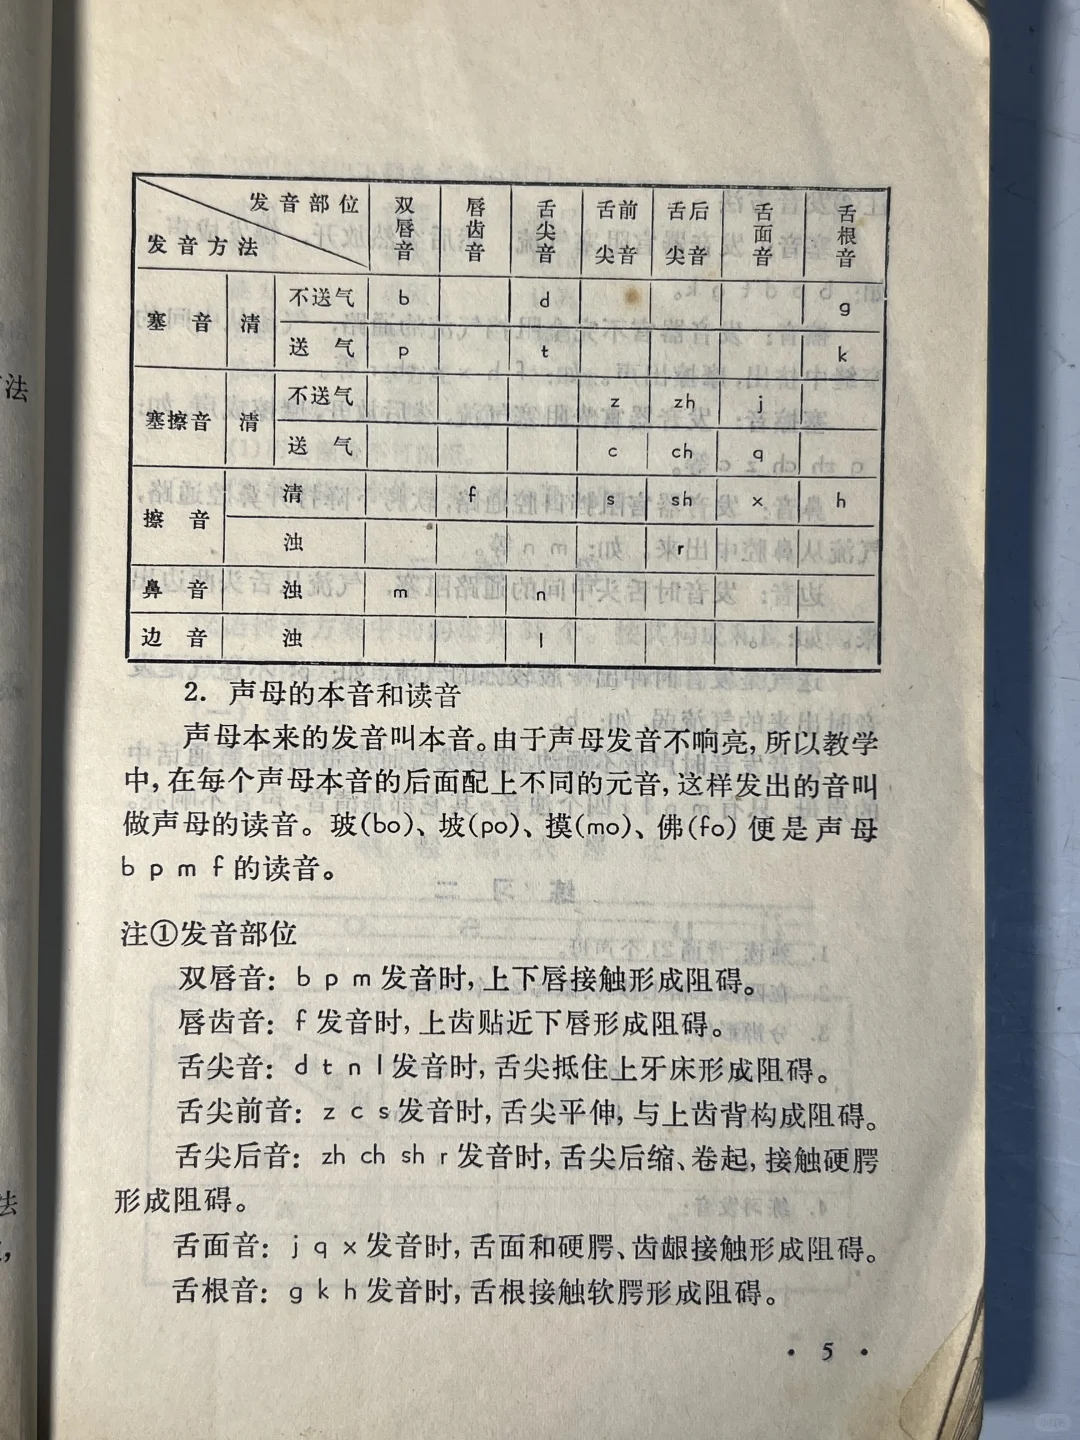 发音部位
发音方法
双唇音 唇齿音 舌尖音 舌尖前音 舌尖后音 舌面音 舌根音
塞音 清 不送气 b d g
送气 p t k
塞擦音 清 不送气 z zh j
送气 c ch q
擦音 清 f s sh x h
浊 r
鼻音 浊 m n
边音 浊 l
2. 声母的本音和读音
声母本来的发音叫本音。由于声母发音不响亮,所以教学
中,在每个声母本音的后面配上不同的元音,这样发出的音叫
做声母的读音。玻(bo)、坡(po)、摸(mo)、佛(fo)便是声母
b p m f 的读音。
注①发音部位
双唇音: b p m 发音时,上下唇接触形成阻碍。
唇齿音: f 发音时,上齿贴近下唇形成阻碍。
舌尖音: d t n l 发音时,舌尖抵住上牙床形成阻碍。
舌尖前音: z c s 发音时,舌尖平伸,与上齿背构成阻碍。
舌尖后音: zh ch sh r 发音时,舌尖后缩、卷起,接触硬腭
形成阻碍。
舌面音: j q x 发音时,舌面和硬腭、齿龈接触形成阻碍。
舌根音: g k h 发音时,舌根接触软腭形成阻碍。
• 5 •
法
法